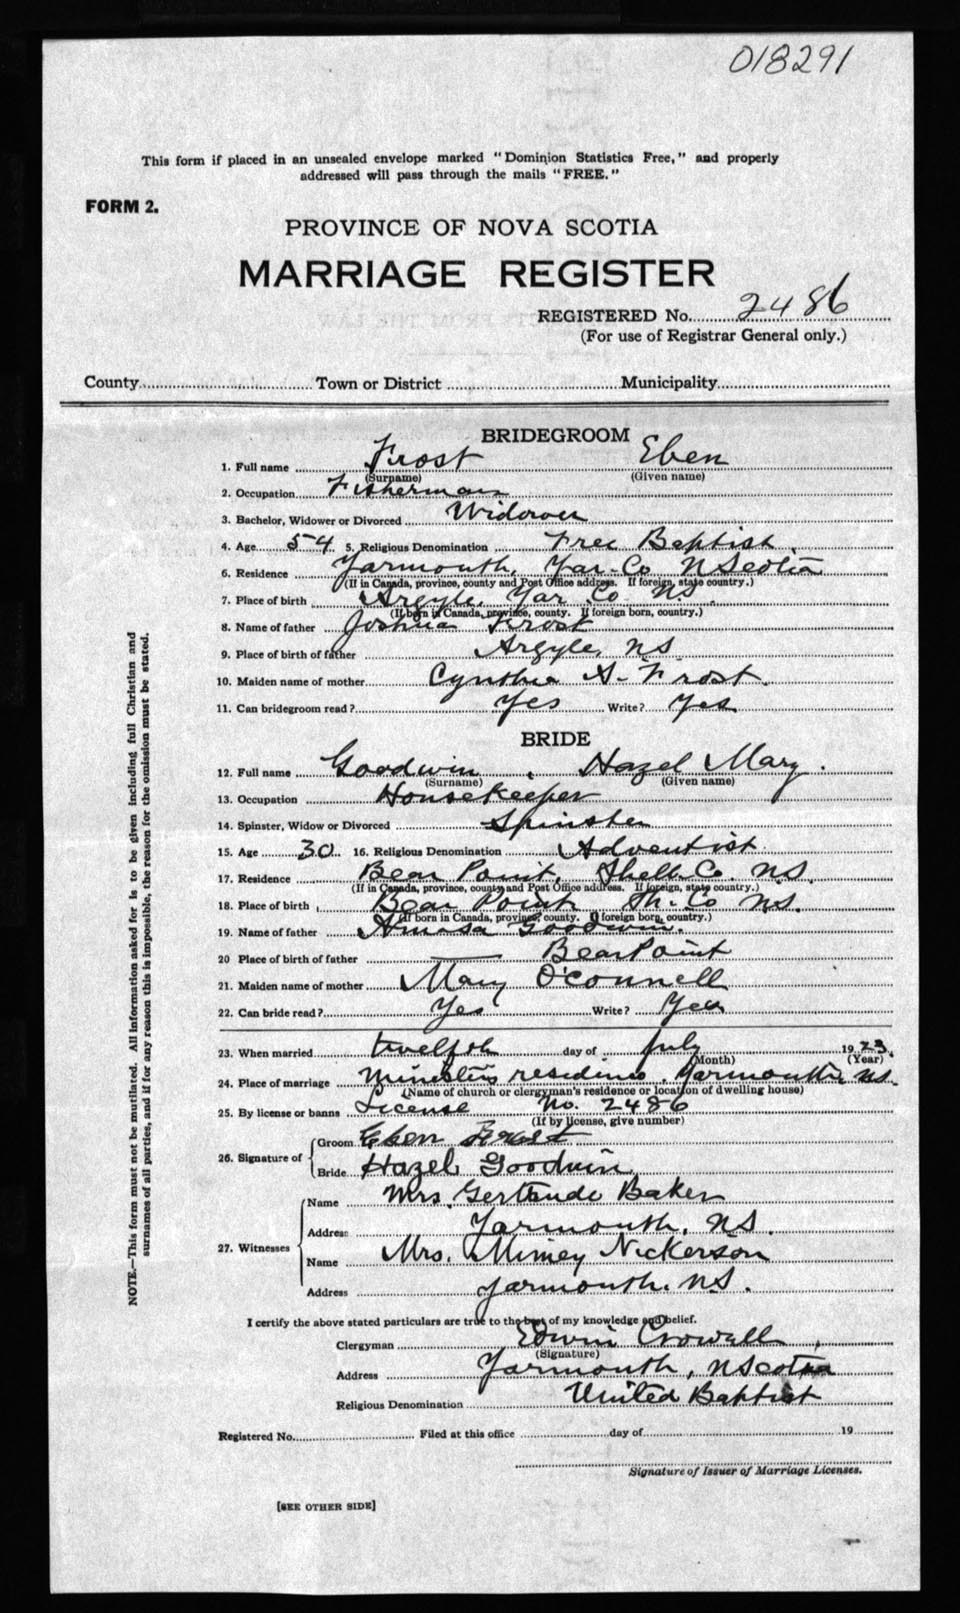 018291
This form if placed in an unsealed envelope marked "Dominion Statistics Free," and properly
addressed will pass through the mails "FREE."
FORM 2.
PROVINCE OF NOVA SCOTIA
MARRIAGE REGISTER
REGISTERED No. 2486
(For use of Registrar General only.)
County Town or District Municipality
BRIDEGROOM
1. Full name Frost Eben
(Surname) (Given name)
2. Occupation Fisherman
3. Bachelor, Widower or Divorced Widower
4. Age 54 5. Religious Denomination Free Baptist
6. Residence Yarmouth, Yar-Co NScotia
(If in Canada, province, county and Post Office address. If foreign, state country.)
7. Place of birth Argyle, Yar Co NS
(If born in Canada, province, county. If foreign born, country.)
8. Name of father Joshua Frost
9. Place of birth of father Argyle, NS
10. Maiden name of mother Cynthia A. Frost.
11. Can bridegroom read? Yes Write? Yes
BRIDE
12. Full name Goodwin, Hazel Mary.
(Surname) (Given name)
13. Occupation Housekeeper
14. Spinster, Widow or Divorced Spinster
15. Age 30 16. Religious Denomination Adventist
17. Residence Bear Point, Shelb Co. NS.
(If in Canada, province, county and Post Office address. If foreign, state country.)
18. Place of birth Bear Point Sh. Co NS.
(If born in Canada, province, county. If foreign born, country.)
19. Name of father Amasa Goodwin.
20 Place of birth of father Bear Point
21. Maiden name of mother Mary O'Connell
22. Can bride read? Yes Write? Yes
23. When married twelfth day of July 1923.
(Month) (Year)
24. Place of marriage Minister's residence, Yarmouth, NS.
(Name of church or clergyman's residence or location of dwelling house)
25. By license or banns License No. 2486
(If by license, give number)
26. Signature of Groom Eben Frost
Bride Hazel Goodwin
27. Witnesses Name Mrs. Gertrude Baker
Address Yarmouth, NS.
Name Mrs. Mimey Nickerson
Address Yarmouth. NS.
I certify the above stated particulars are true to the best of my knowledge and belief.
Clergyman Edwin Crowell
(Signature)
Address Yarmouth, NScotia
Religious Denomination United Baptist
Registered No. Filed at this office day of 19
Signature of Issuer of Marriage Licenses.
[SEE OTHER SIDE]
NOTE.—This form must not be mutilated. All information asked for is to be given including full Christian and
surnames of all parties, and if for any reason this is impossible, the reason for the omission must be stated.